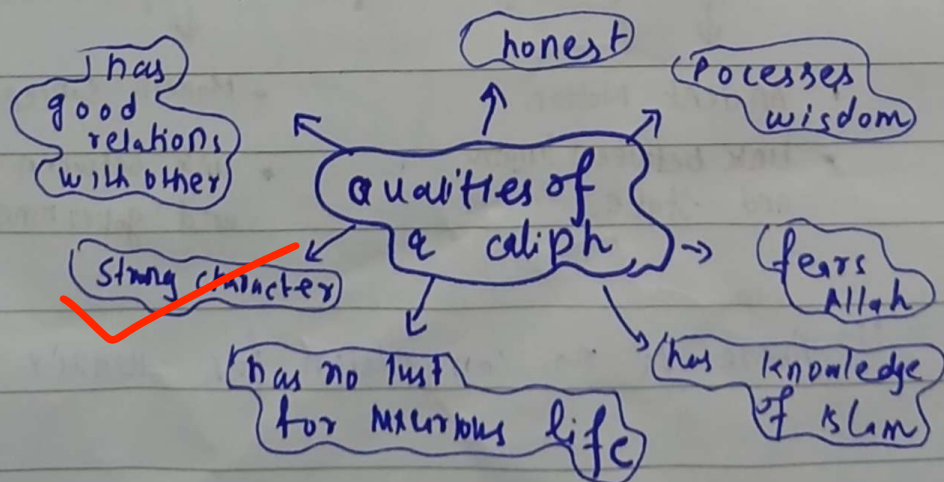 honest
has
good
relations
with other
Pocesses
wisdom
Qualities of
a caliph
Strong character
fears
Allah
has no lust
for luxurious life
has knowledge
of Islam